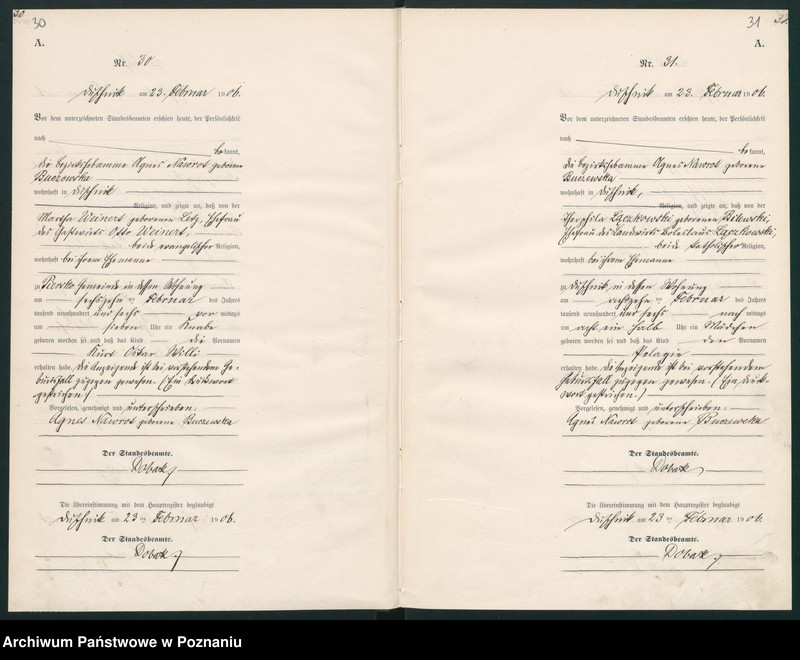 30
30
A.
Nr. 30
Duschnik am 23. Februar 1906.
Vor dem unterzeichneten Standesbeamten erschien heute, der Persönlichkeit
nach
be kannt,
die Bezirkshebamme Agnes Nawrot geborene
Buczewska
wohnhaft in Duschnik
Religion, und zeigte an, daß von der
Martha Weinert geborenen Letz, Ehefrau
des Gastwirts Otto Weinert,
beide evangelischer Religion,
wohnhaft bei ihrem Ehemanne
zu Piersko Gemeinde in dessen Wohnung
am sechszehnten Februar des Jahres
tausend neunhundert und sechs vor mittags
um sieben Uhr ein Knabe
geboren worden sei und daß das Kind die Vornamen
Kurt Oskar Willi
erhalten habe. Die Anzeigende ist bei vorstehendem Ge-
burtsfall zugegen gewesen. (Ein Druckwort
gestrichen.)
Vorgelesen, genehmigt und unterschrieben.
Agnes Nawrot geborene Buczewska
Der Standesbeamte.
Dobak
Die Übereinstimmung mit dem Hauptregister beglaubigt
Duschnik am 23ten Februar 1906.
Der Standesbeamte.
Dobak
31
31
A.
Nr. 31.
Duschnik am 23. Februar 1906.
Vor dem unterzeichneten Standesbeamten erschien heute, der Persönlichkeit
nach
be kannt,
die Bezirkshebamme Agnes Nawrot geborene
Buczewska
wohnhaft in Duschnik,
Religion, und zeigte an, daß von der
Theophila Łączkowski geborenen Bilewski,
Ehefrau des Landwirts Boleslaus Łączkowski,
beide katholischer Religion,
wohnhaft bei ihrem Ehemanne
zu Duschnik in dessen Wohnung
am achtzehnten Februar des Jahres
tausend neunhundert und sechs nach mittags
um acht ein halb Uhr ein Mädchen
geboren worden sei und daß das Kind den Vornamen
Pelagie
erhalten habe. Die Anzeigende ist bei vorstehendem
Geburtsfall zugegen gewesen. (Ein Druck-
wort gestrichen.)
Vorgelesen, genehmigt und unterschrieben.
Agnes Nawrot geborene Buczewska
Der Standesbeamte.
Dobak
Die Übereinstimmung mit dem Hauptregister beglaubigt
Duschnik am 23ten Februar 1906.
Der Standesbeamte.
Dobak
Archiwum Państwowe w Poznaniu